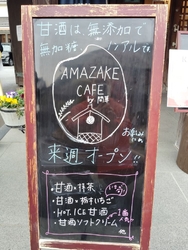 甘酒は無添加で
無加糖、ノンアルです。
AMAZAKE
CAFE
by
来週オープン!!
・甘酒+抹茶
・甘酒+栃いちご
・HOT, ICE甘酒
・甘酒ソフトクリーム
他